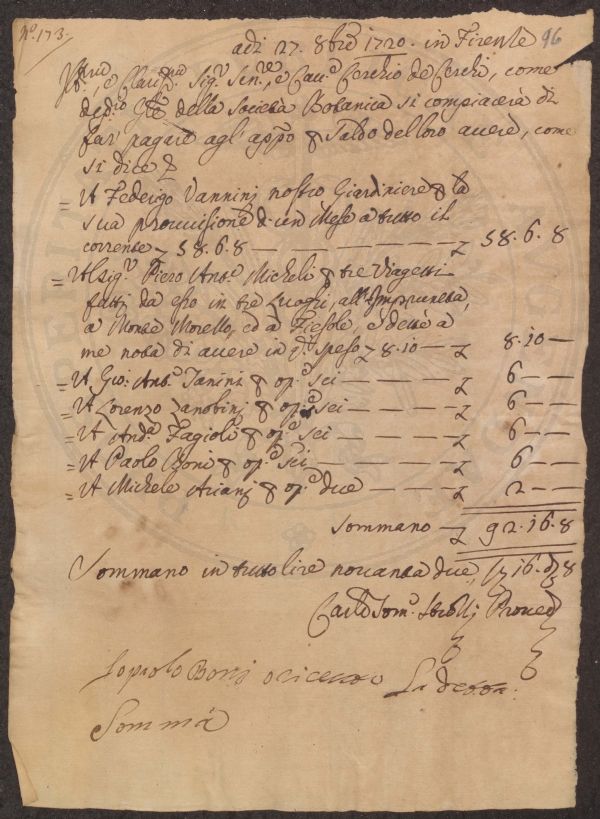 N.º 173.
adì 27. 8bre 1720. in Firenze 96
Ill.mo, e Clar.mo Sig.r Sen.re, e Cav.e Cerchio de Cerchi, come
Dep.rio della Società Botanica si compiacerà di
far' pagare agl' app.o p Saldo del loro avere, come
si dice £
= A Federigo Vannini nostro Giardiniere p la
sua provvisione d. un Mese a tutto il
corrente £ 58.6.8 — £ 58.6.8
= Al Sig.r Piero Ant.o Micheli p tre Viagetti
fatti da esso in tre Luoghi, all'Impruneta,
a Monte Morello, ed a Fiesole, e dette a
me nota di avere in d.i speso £ 8.10 — £ 8.10 —
= A Gio: Ant.o Tanini p op.e sei — £ 6 —
= A Lorenzo Zanobini p op.e sei — £ 6 —
= A And.a Fagioli p op.e sei — £ 6 —
= A Paolo Boni p op.e sei — £ 6 —
= A Michele Ariani p op.e due — £ 2 —
Sommano — £ 92.16.8
Sommano in tutto lire novanta due, s 16. d 8
Carlo Tom.o Strozzi Proved
Io paolo Boni o riceuto La detta
Somma